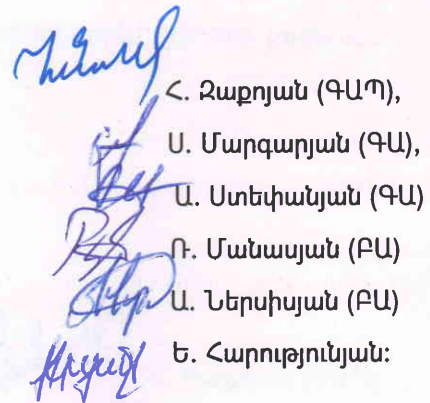 Հ. Զաքոյան (ԳԱՊ),
Ս. Մարգարյան (ԳԱ),
Ա. Ստեփանյան (ԳԱ)
Ռ. Մանասյան (ԲԱ)
Ա. Ներսիսյան (ԲԱ)
Ե. Հարությունյան: